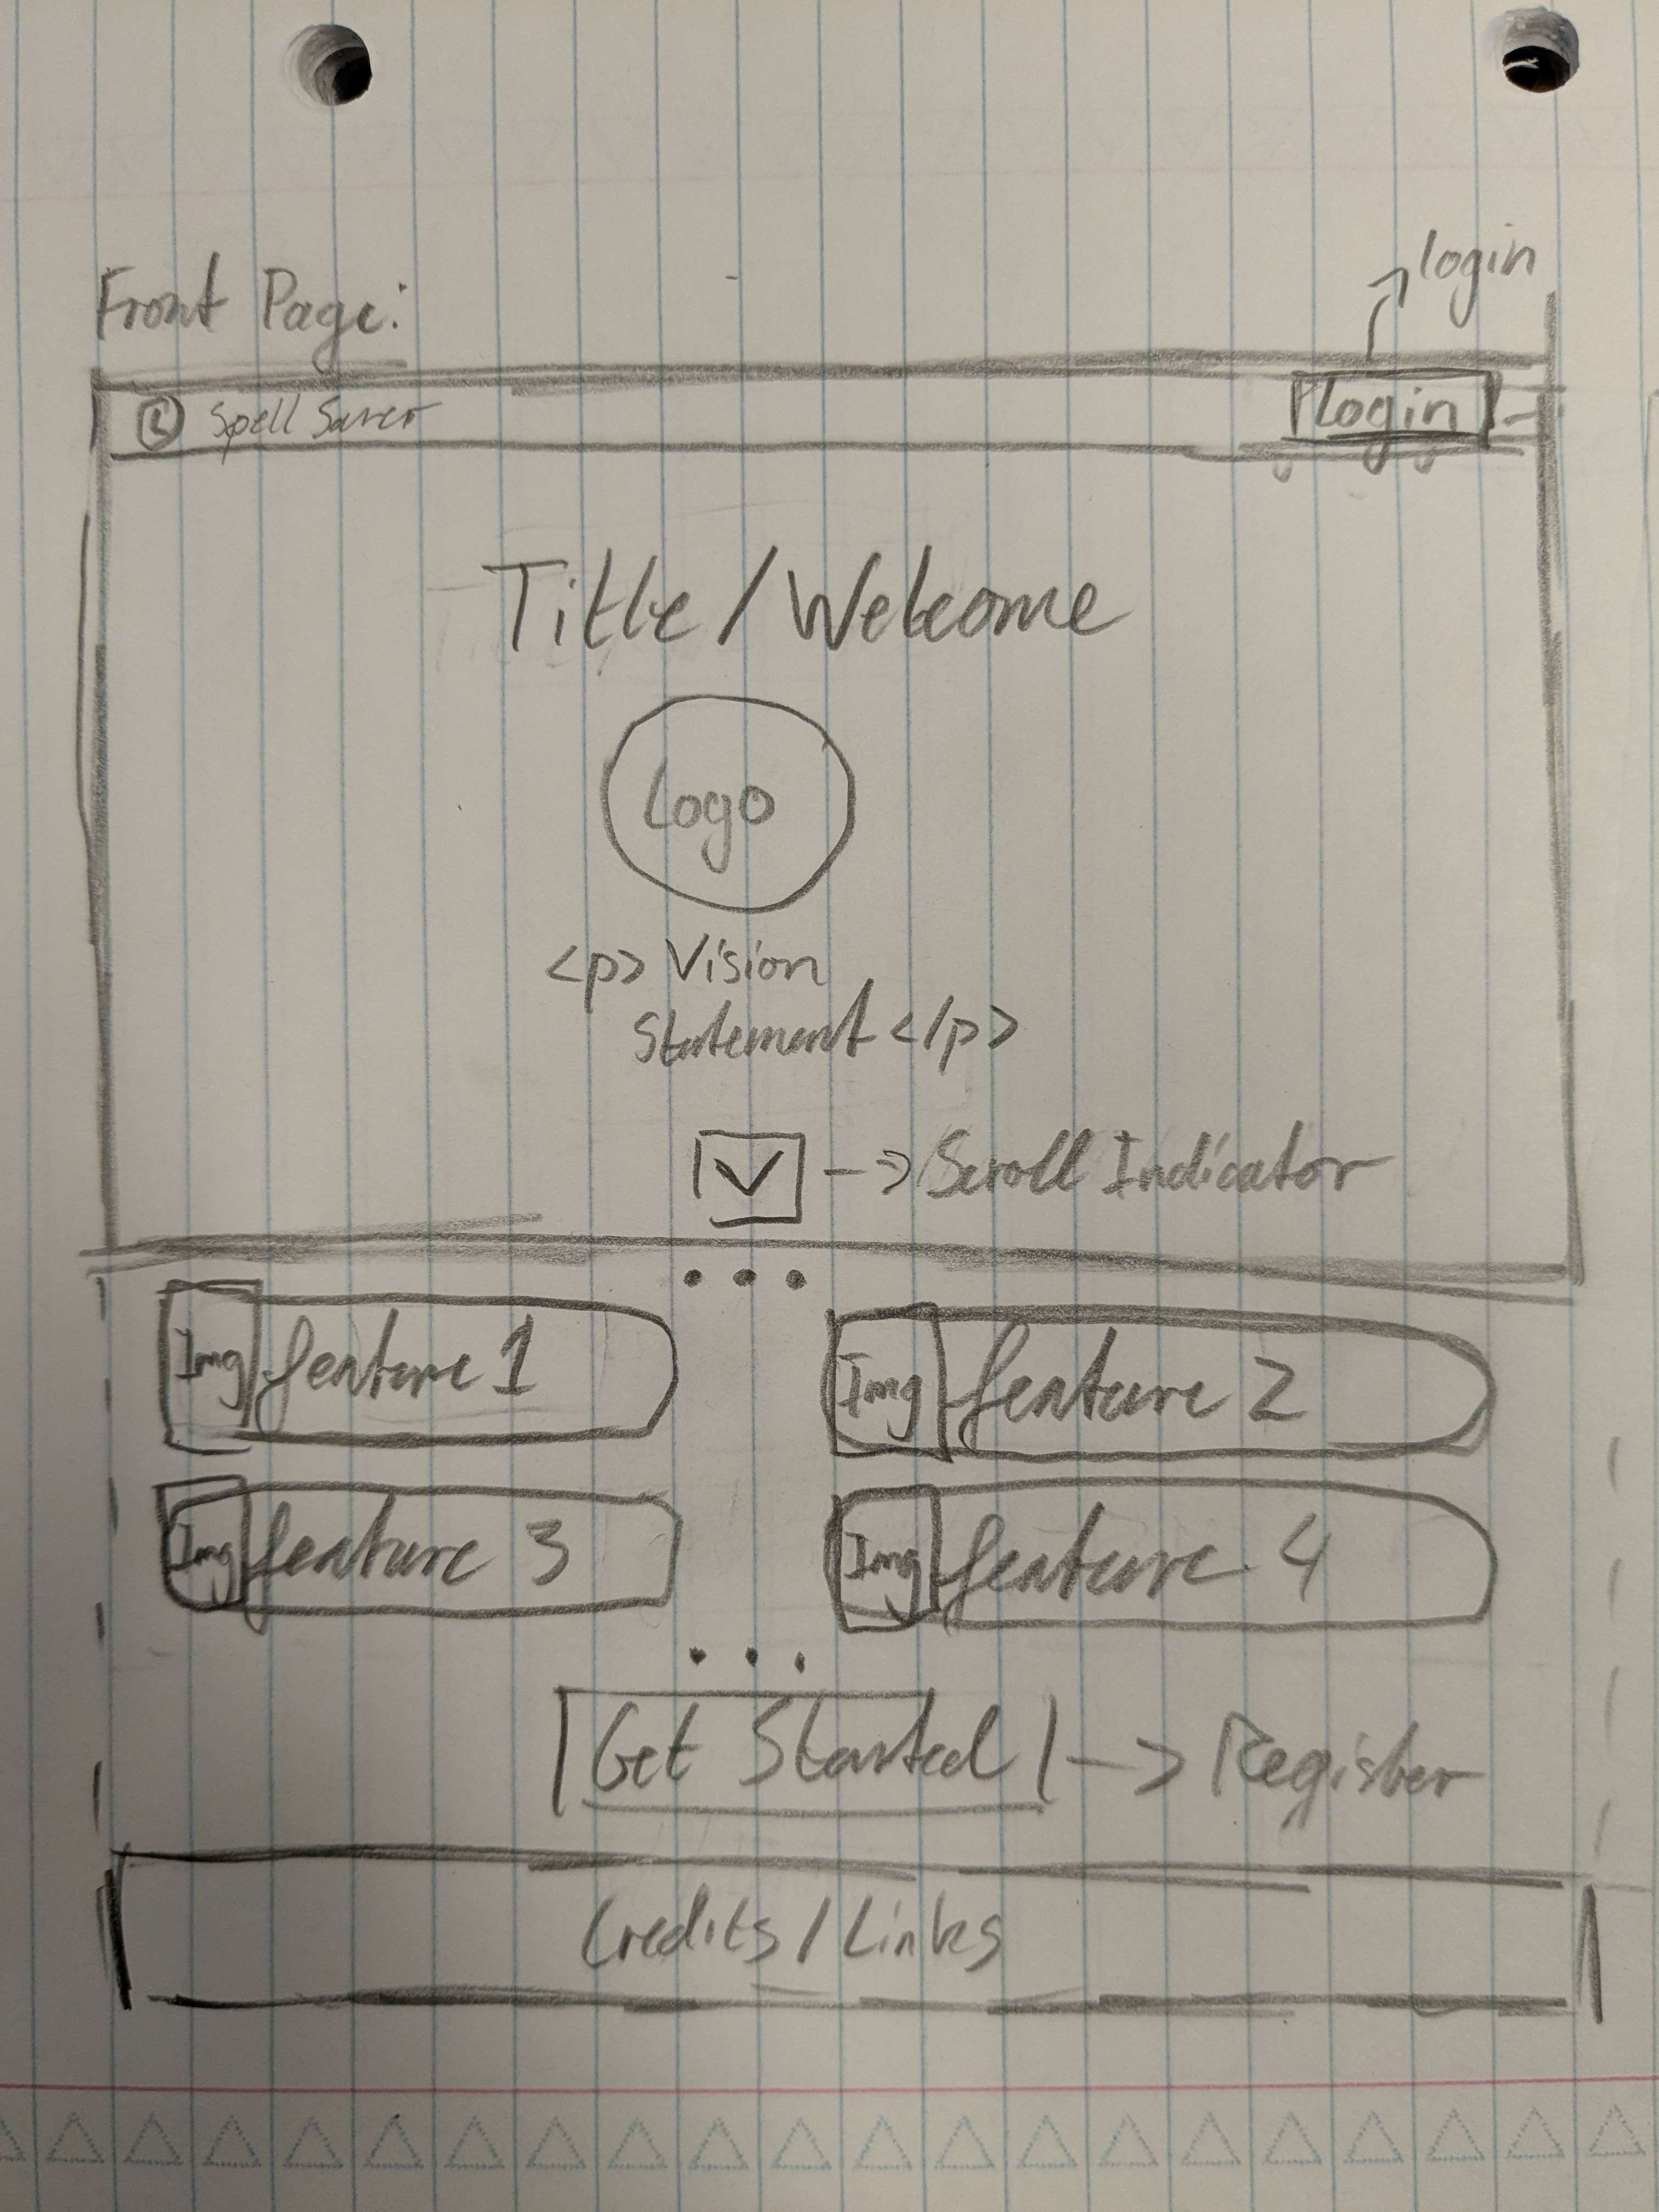 login
Front Page:
L Spell Saver
Login
Title/Welcome
Logo
<p> Vision
Statement </p>
V --> Scroll Indicator
...
Img feature 1
Img feature 2
Img feature 3
Img feature 4
...
Get Started --> Register
Credits/Links